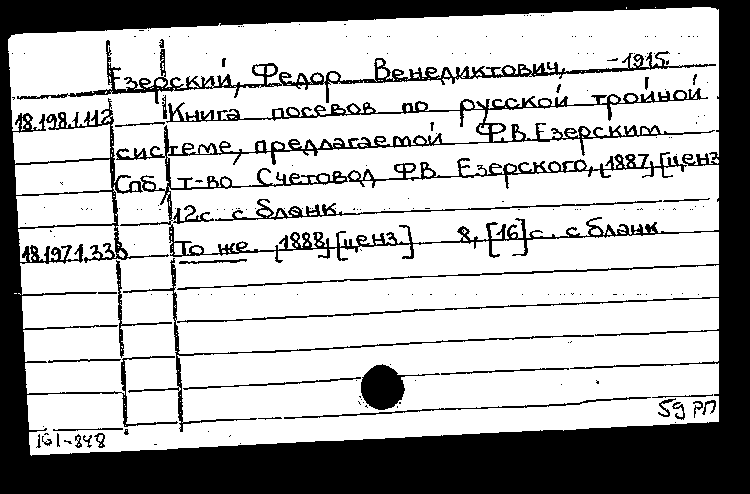 Езерский, Федор Венедиктович, -1915.
18.198.1.112 Книга посевов по русской тройной
системе, предлагаемой Ф.В.Езерским.
Спб., т-во Счетовод Ф.В. Езерского, [1887, [ценз
12с. с бланк.
18.197.1.333 То же. [1888] [ценз.] 8, [16]с. с бланк.
59 РП
161-848